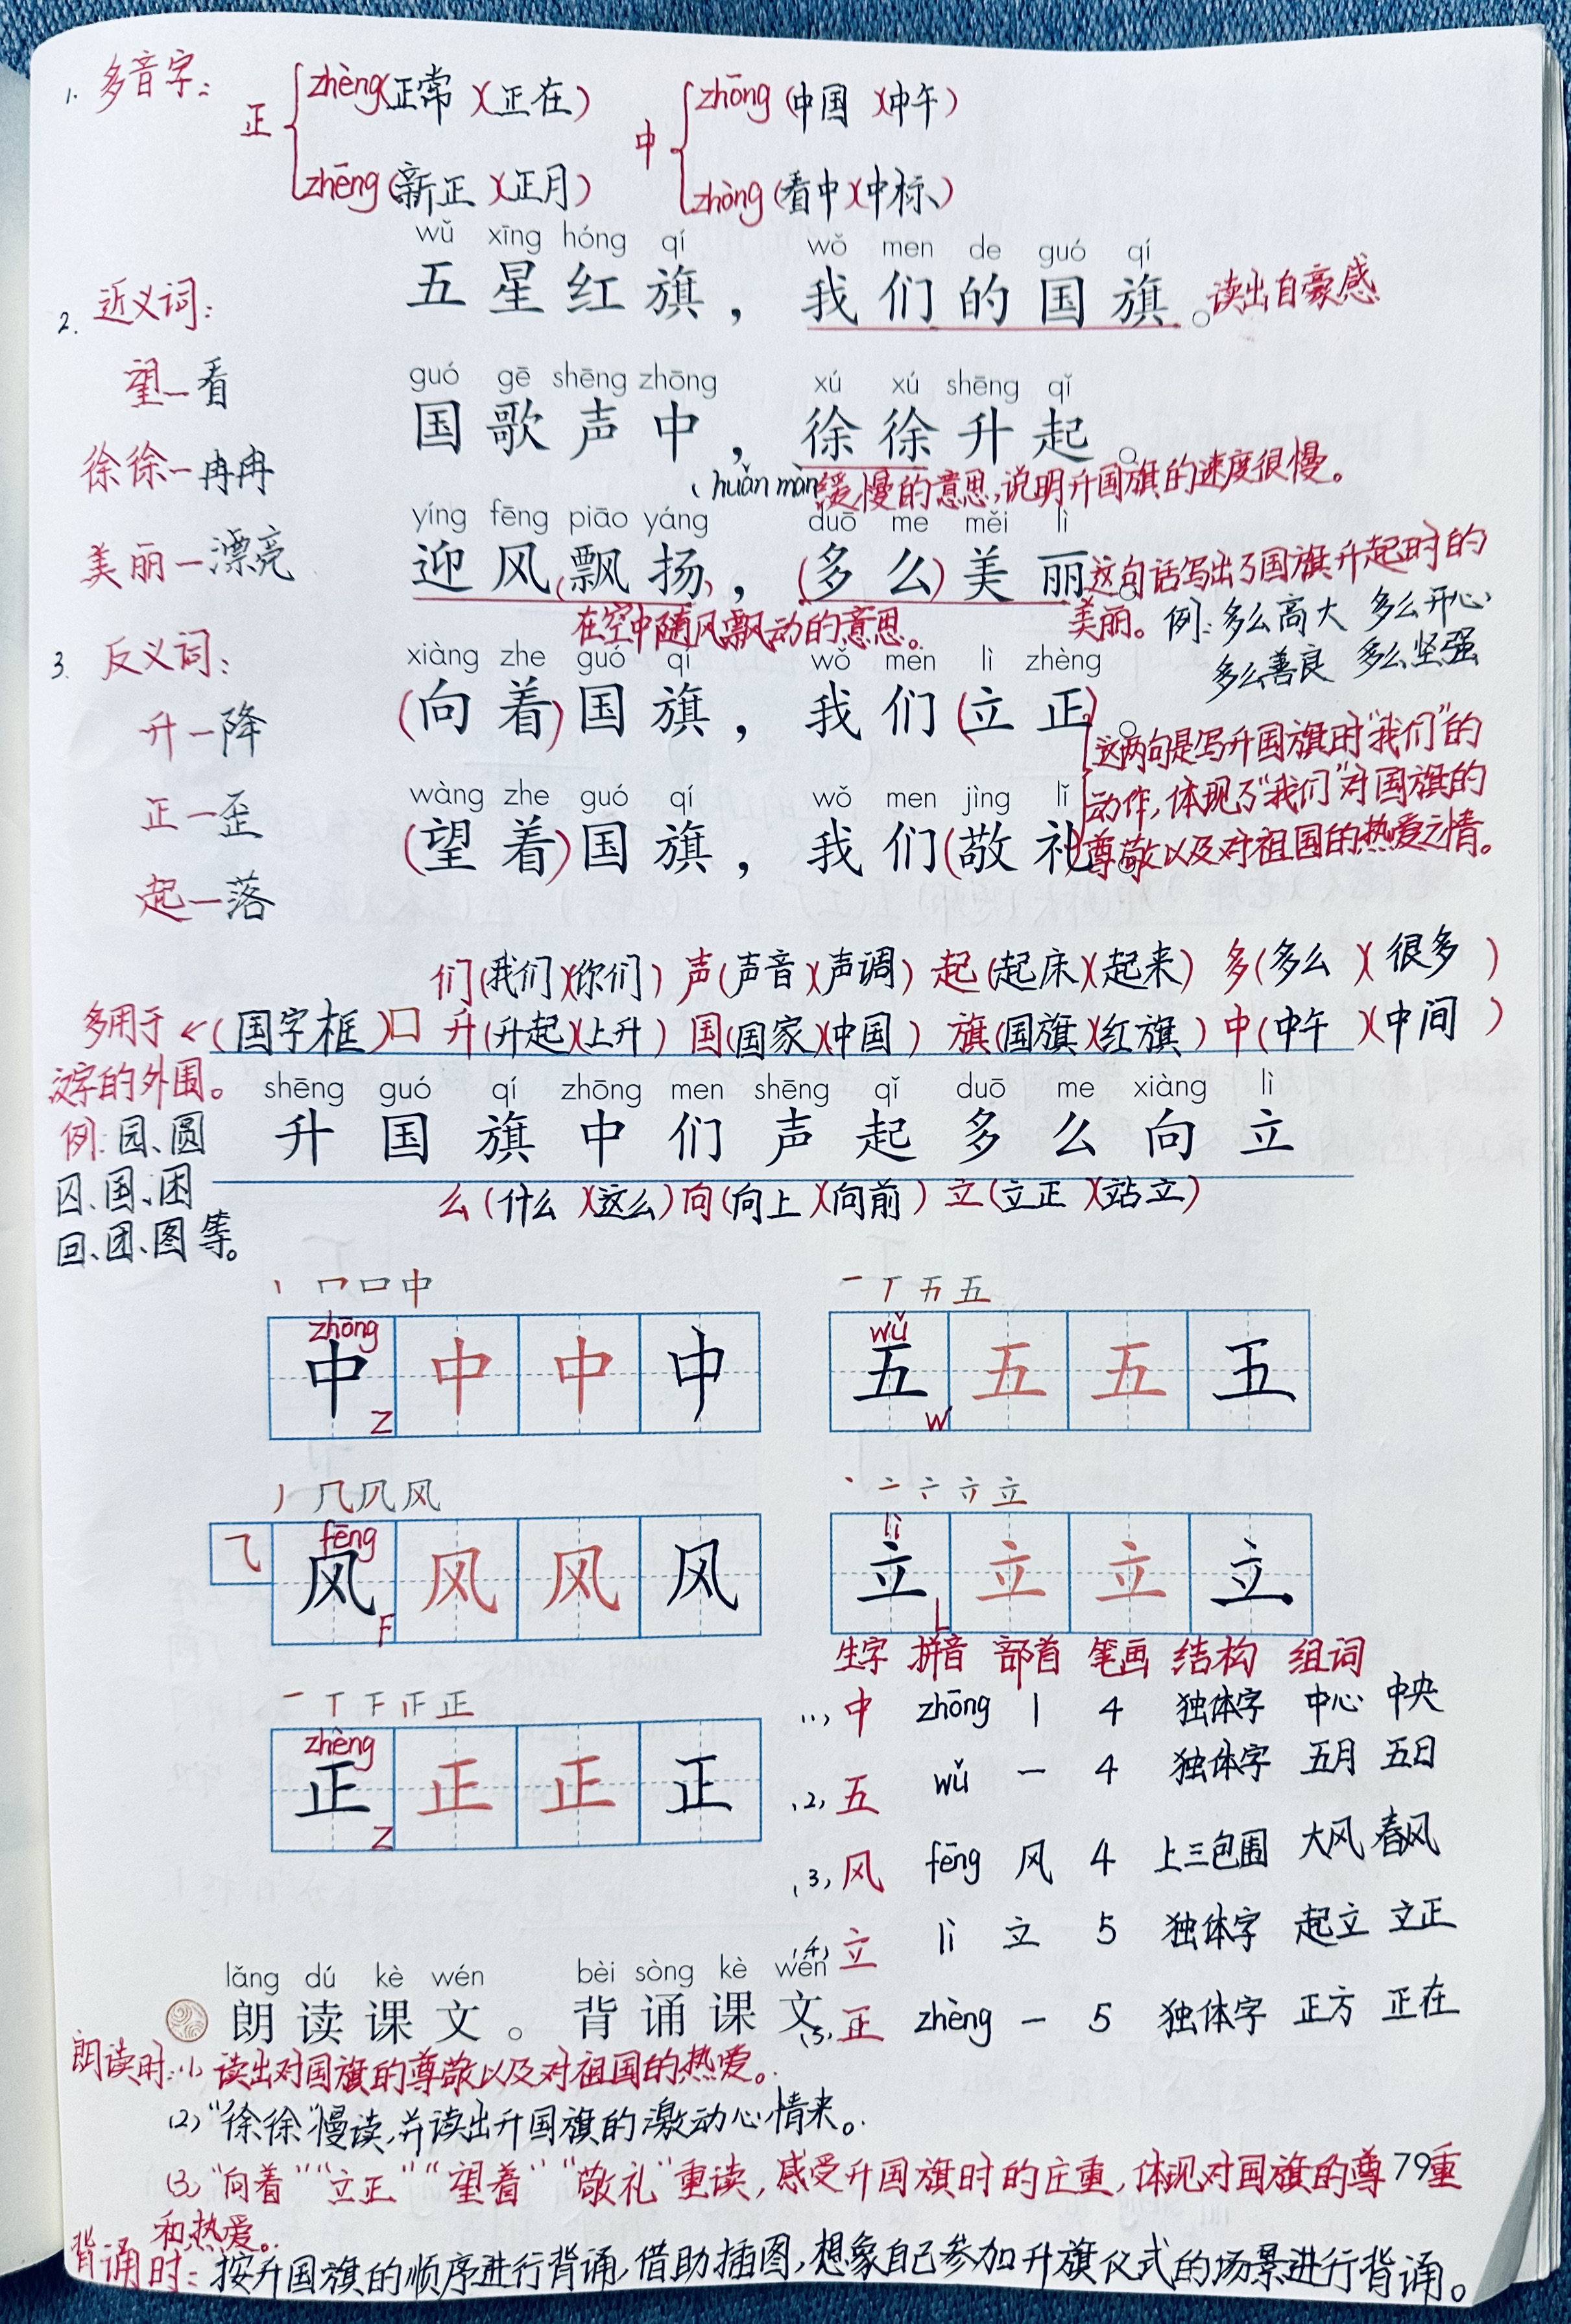 1. 多音字: 正 zhèng(正常)(正在) zhēng(新正)(正月) 中 zhōng(中国)(中午) zhòng(看中)(中标)
wǔ xīng hóng qí wǒ men de guó qí
五星红旗，我们的国旗。读出自豪感
2. 近义词:
望—看
徐徐—冉冉
美丽—漂亮
guó gē shēng zhōng xú xú shēng qǐ
国歌声中，徐徐升起。
huǎn màn 缓慢的意思,说明升国旗的速度很慢。
yíng fēng piāo yáng duō me měi lì
迎风(飘扬)，(多么)美丽。
在空中随风飘动的意思。
这句话写出了国旗升起时的
美丽。例:多么高大 多么开心
多么善良 多么坚强
3. 反义词:
升—降
正—歪
起—落
xiàng zhe guó qí wǒ men lì zhèng
(向着)国旗，我们(立正)。
wàng zhe guó qí wǒ men jìng lǐ
(望着)国旗，我们(敬礼)。
这两句是写升国旗时"我们"的
动作,体现了"我们"对国旗的
尊敬以及对祖国的热爱之情。
们(我们)(你们) 声(声音)(声调) 起(起床)(起来) 多(多么)(很多)
多用于←(国字框)囗 升(升起)(上升) 国(国家)(中国) 旗(国旗)(红旗) 中(中午)(中间)
汉字的外围。
例:园、圆
囚、国、困
回、团、图等。
shēng guó qí zhōng men shēng qǐ duō me xiàng lì
升 国 旗 中 们 声 起 多 么 向 立
么(什么)(这么) 向(向上)(向前) 立(立正)(站立)
丨 冂 口 中
zhōng
中 中 中 中
Z
一 丅 五 五
wǔ
五 五 五 五
W
丿 几 风 风
fēng
⺄ 风 风 风 风
F
丶 亠 立
lì
立 立 立 立
L
一 丅 下 正 正
zhèng
正 正 正 正
Z
生字 拼音 部首 笔画 结构 组词
(1) 中 zhōng 丨 4 独体字 中心 中央
(2) 五 wǔ 一 4 独体字 五月 五日
(3) 风 fēng 风 4 上三包围 大风 春风
(4) 立 lì 立 5 独体字 起立 立正
(5) 正 zhèng 一 5 独体字 正方 正在
lǎng dú kè wén bèi sòng kè wén
朗读课文。背诵课文
朗读时:(1) 读出对国旗的尊敬以及对祖国的热爱。
(2)"徐徐"慢读,并读出升国旗的激动心情来。
(3)"向着""立正""望着""敬礼"重读,感受升国旗时的庄重,体现对国旗的尊重
79
和热爱。
背诵时:按升国旗的顺序进行背诵,借助插图,想象自己参加升旗仪式的场景进行背诵。